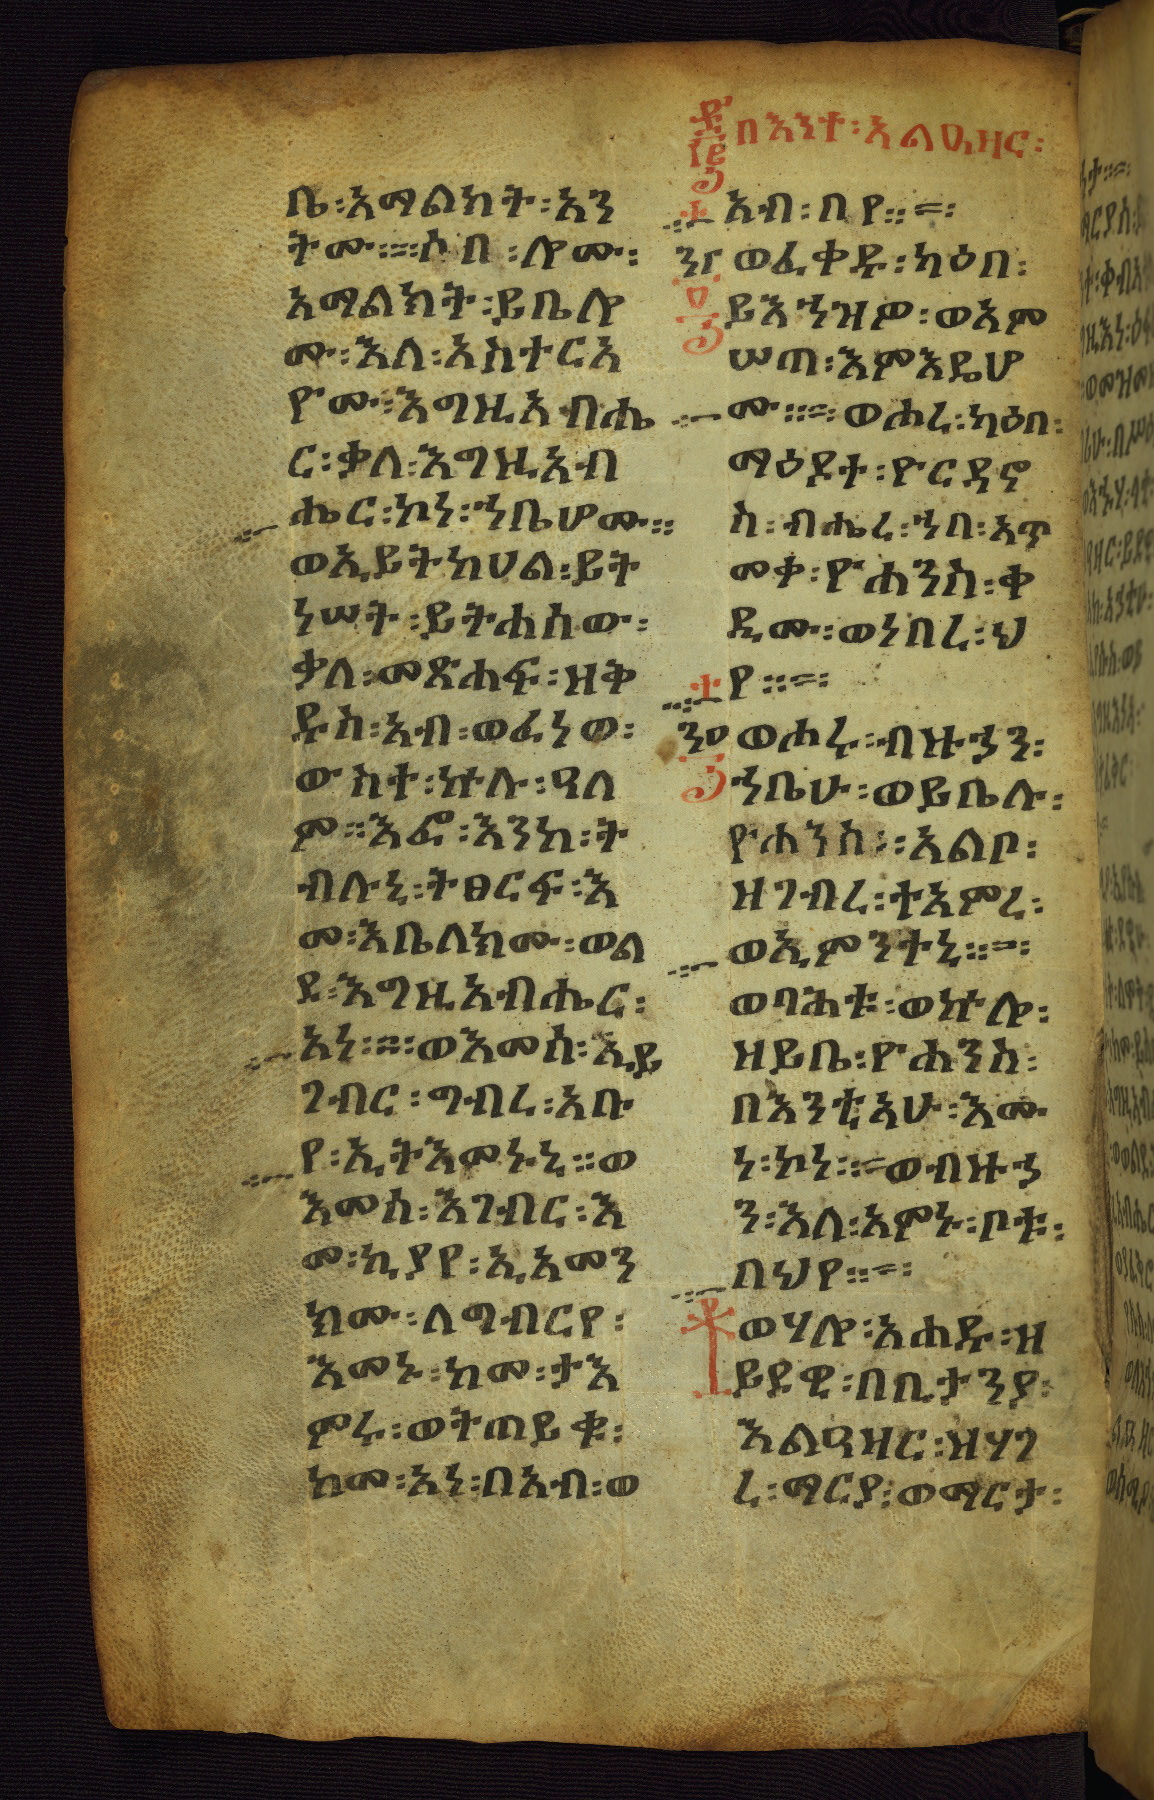 በእንተ፡አልዓዛር፡
ቤ፡አማልክት፡አን
ትሙ።ሶበ፡ሎሙ፡
አማልክት፡ይቤሎ
ሙ፡እለ፡አስተርአ
ዮሙ፡እግዚአብሔ
ር፡ቃለ፡እግዚአብ
ሔር፡ኮነ፡ኀቤሆሙ።
ወኢይትከሀል፡ይት
ነሠት፡ይትሐሰው፡
ቃለ፡መጽሐፍ፡ዘቅ
ዱስ፡አብ፡ወፈነወ፡
ውስተ፡ኵሉ፡ዓለ
ም።እፎ፡እንከ፡ት
ብሉኒ፡ትፀርፍ፡እ
መ፡እቤለክሙ፡ወል
ደ፡እግዚአብሔር፡
አነ።ወእመሰ፡ኢይ
ገብር፡ግብረ፡አቡ
የ፡ኢትእመኑኒ።ወ
እመሰ፡እገብር፡እ
መ፡ኪያየ፡ኢአመን
ክሙ፡ለግብርየ፡
እመኑ፡ከመ፡ታእ
ምሩ፡ወትጠይቁ፡
ከመ፡አነ፡በአብ፡ወ
አብ፡በየ።
ወፈቀዱ፡ካዕበ፡
ይእኀዝዎ፡ወአም
ሠጠ፡እምእዴሆ
ሙ።ወሐረ፡ካዕበ፡
ማዕዶተ፡ዮርዳኖ
ስ፡ብሔረ፡ኀበ፡አጥ
መቀ፡ዮሐንስ፡ቀ
ዲሙ፡ወነበረ፡ህ
የ።
ወሐሩ፡ብዙኃን፡
ኀቤሁ፡ወይቤሉ፡
ዮሐንስ፡አልቦ፡
ዘገብረ፡ተአምረ፡
ወኢምንተኒ።
ወባሕቱ፡ወኵሎ፡
ዘይቤ፡ዮሐንስ፡
በእንቲአሁ፡እሙ
ነ፡ኮነ።ወብዙኃ
ን፡እለ፡አምኑ፡ቦቱ፡
በህየ።
ወሃሎ፡አሐዱ፡ዘ
ይደዊ፡በቢታንያ፡
አልዓዛር፡ዝሃገ
ረ፡ማርያ፡ወማርታ፡